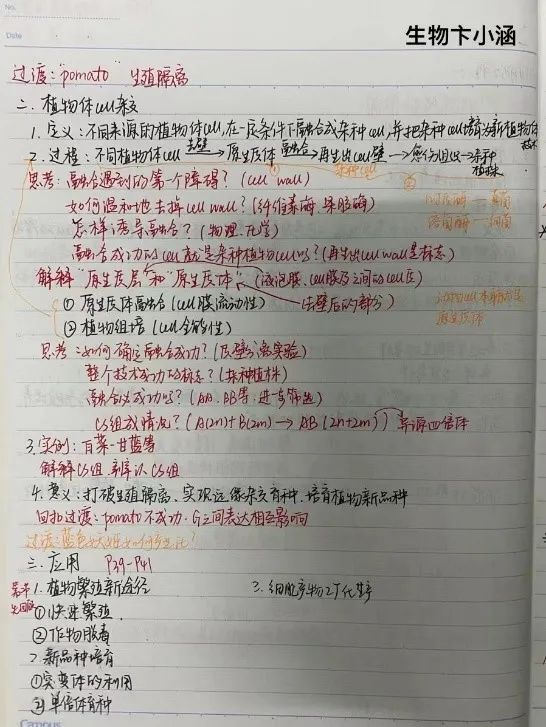 No.
Date
生物卞小涵
过渡："pomato" 生殖隔离
二、植物体cell杂交
1. 定义：不同来源的植物体cell，在一定条件下融合成杂种cell，并把杂种cell培育为新植物体
技术
2. 过程：不同植物体cell 去壁→原生质体 融合→再生出cell壁→愈伤组织→杂种植株
杂种cell
思考：融合遇到的第一个障碍？(cell wall)
如何温和地去掉cell wall？(纤维素酶、果胶酶)
怎样诱导融合？(物理、化学)
融合成功的cell就是杂种植物cell吗？(再生出cell wall是标志)
解释"原生质层"和"原生质体"(液泡膜、cell膜及之间的cell质)
去壁后的部分)
动物cell本身就是
原生质体
① 原生质体融合(cell膜流动性)
② 植物组培(cell全能性)
思考：如何确定融合成功？(质壁分离实验)
整个技术成功的标志？(杂种植株)
融合成功吗？(AA、BB等；进步筛选)
CS组成情况？(A(2n)+B(2m)→AB(2n+2m)) 异源四倍体
3. 实例：白菜-甘蓝等
解释CS组，辨认CS组
4. 意义：打破生殖隔离、实现远缘杂交育种、培育植物新品种
回扣过渡：pomato不成功·G之间表达相互影响
三、应用 P39-P41
1. 植物繁殖新途径
3. 细胞产物工厂化生产
① 快速繁殖
② 作物脱毒
2. 新品种培育
① 突变体的利用
② 单倍体育种
Campus